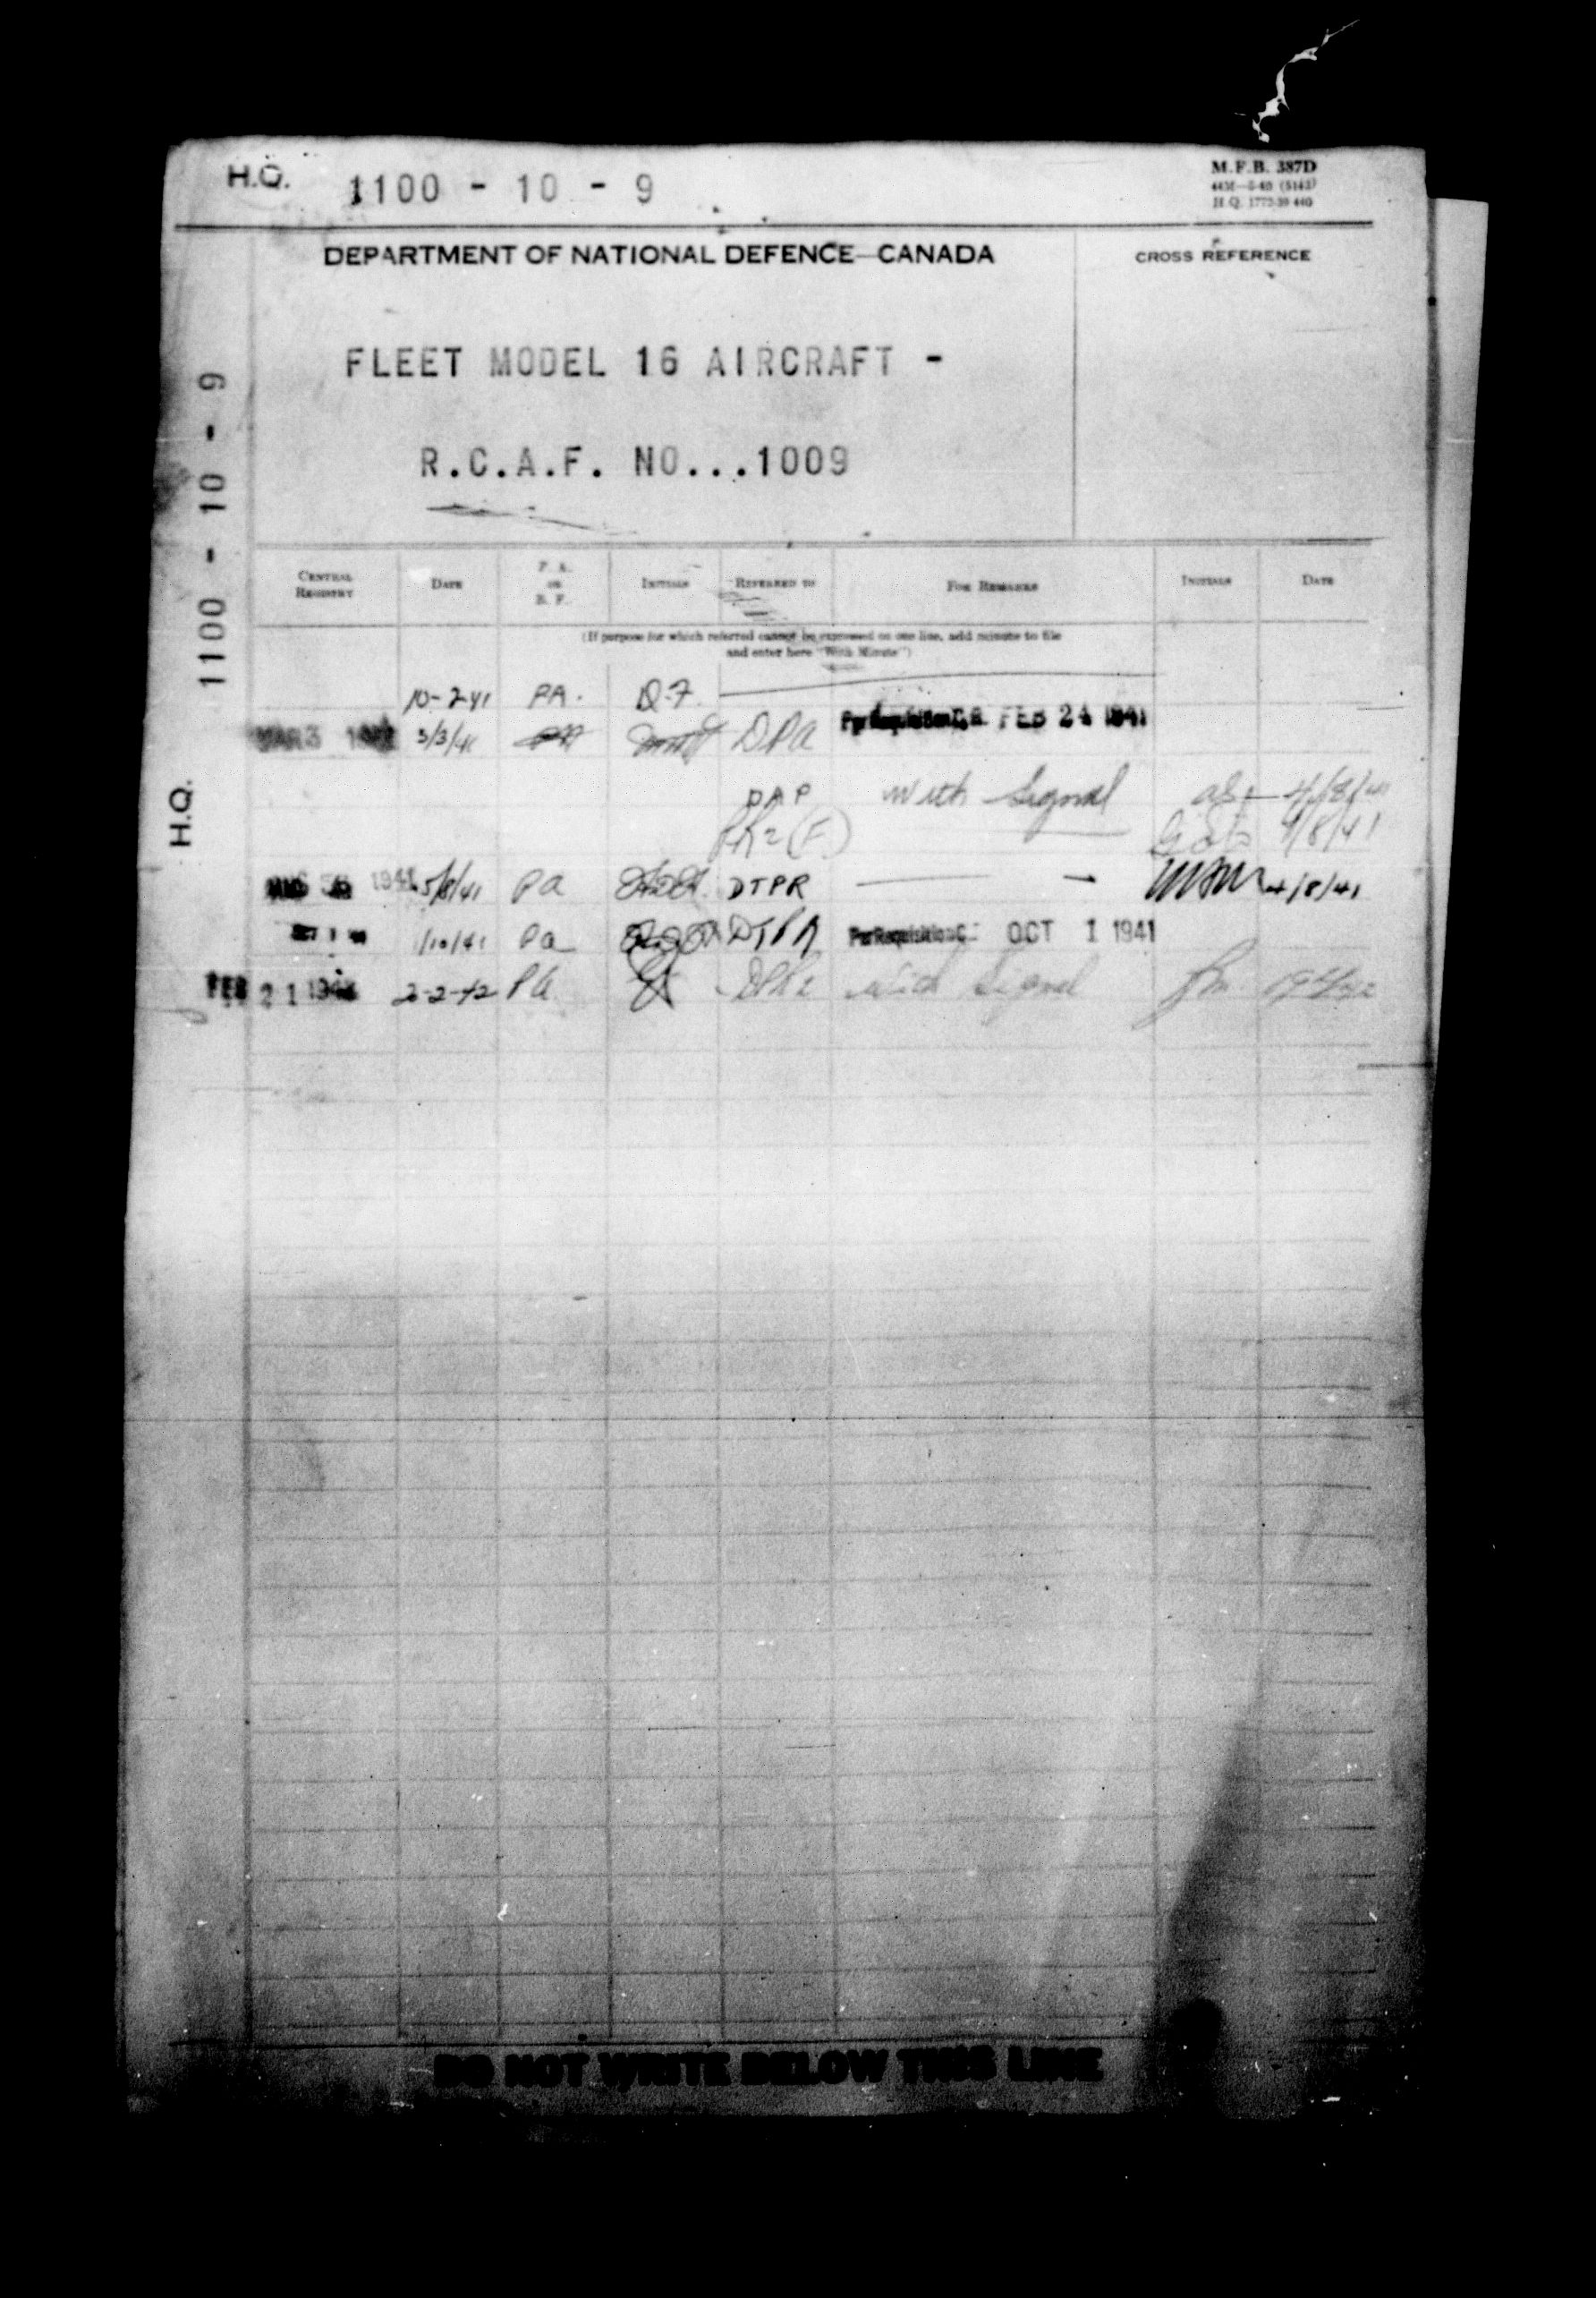 H.Q. 1100 - 10 - 9
M.F.B. 387D
44M—8-40 (5143)
H.Q. 1772-39 440
DEPARTMENT OF NATIONAL DEFENCE—CANADA
CROSS REFERENCE
FLEET MODEL 16 AIRCRAFT -
R.C.A.F. NO...1009
H.Q. 1100 - 10 - 9
CENTRAL REGISTRY DATE P. A. OR B. F. INITIALS REFERRED TO FOR REMARKS INITIALS DATE
(If purpose for which referred cannot be expressed on one line, add minute to file
and enter here "With Minute")
10-2-41 PA.
MAR 3 3/3/41 DPA Per Requisition FEB 24 1941
DAP With Signal 4/8/41
4/8/41
1941 5/8/41 PA DTPR 4/8/41
1/10/41 Pa Per Requisition OCT 1 1941
FEB 21 PA With Signal
DO NOT WRITE BELOW THIS LINE